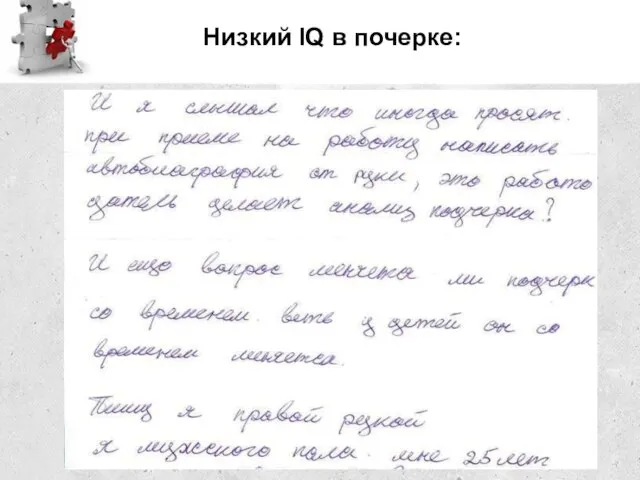 Низкий IQ в почерке:
И я слышал что иногда просят.
при приеме на работу написать
автобиаграфия от руки, это работо
датель делает анализ подчерка?
И ещо вопрос менчета ли подчерк
со временем. веть у детей он со
временем менчетса.
Пишу я правой рукой
я мужского пола. мне 25 лет